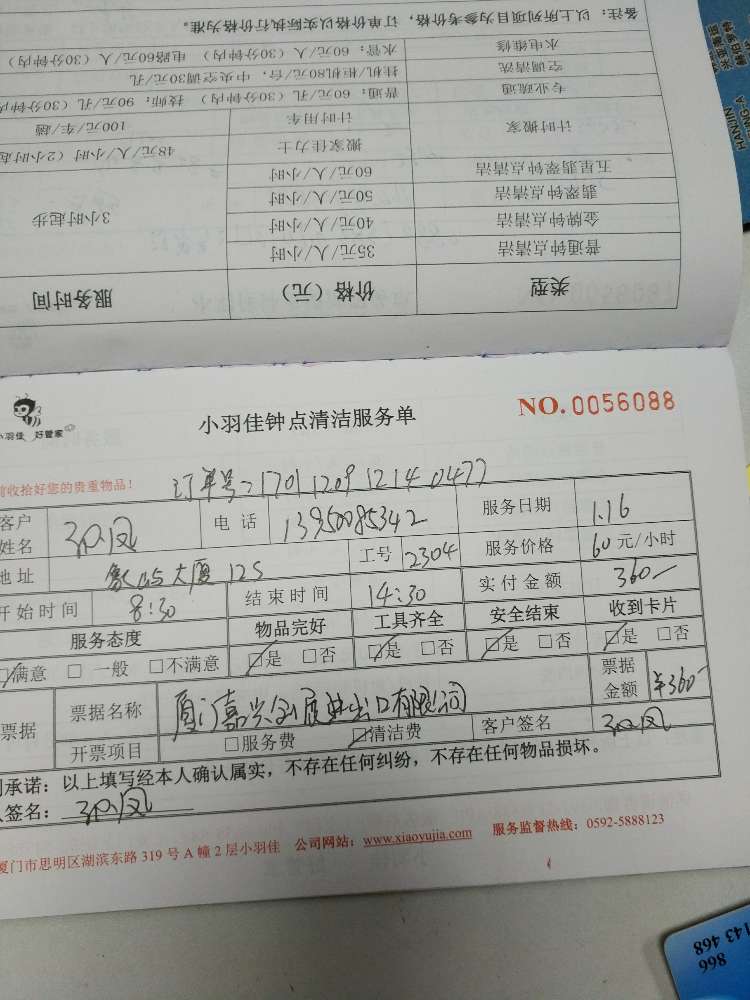 备注：以上所列项目为参考价格，订单价格以实际执行价格为准。
水电维修 水管：60元/人/（30分钟内） 电路60元/人/（30分钟内）
空调清洗 挂机/柜机80元/台，中央空调30元/孔
专业疏通 普通：60元/孔（30分钟内） 技师：90元/孔（30分钟内
计时搬家 计时用车 100元/车/趟
搬家佳力士 48元/人/小时（2小时起
五星翡翠钟点清洁 60元/人/小时
翡翠钟点清洁 50元/人/小时 3小时起步
金牌钟点清洁 40元/人/小时
普通钟点清洁 35元/人/小时
类型 价格（元） 服务时间
小羽佳 好管家
小羽佳钟点清洁服务单
NO.0056088
前收拾好您的贵重物品！
订单号：1701120912140477
客户姓名 电话 13950085342 服务日期 1.16
地址 大厦12S 工号 2304 服务价格 60元/小时
开始时间 8:30 结束时间 14:30 实付金额 360
服务态度 物品完好 工具齐全 安全结束 收到卡片
☑满意 □一般 □不满意 ☑是 □否 ☑是 □否 ☑是 □否 ☑是 □否
票据 票据名称 厦门嘉兴 进出口有限公司 票据金额 ¥360
开票项目 □服务费 ☑清洁费 客户签名
承诺：以上填写经本人确认属实，不存在任何纠纷，不存在任何物品损坏。
签名：
厦门市思明区湖滨东路319号A幢2层小羽佳 公司网站：www.xiaoyujia.com 服务监督热线：0592-5888123
143 468
866